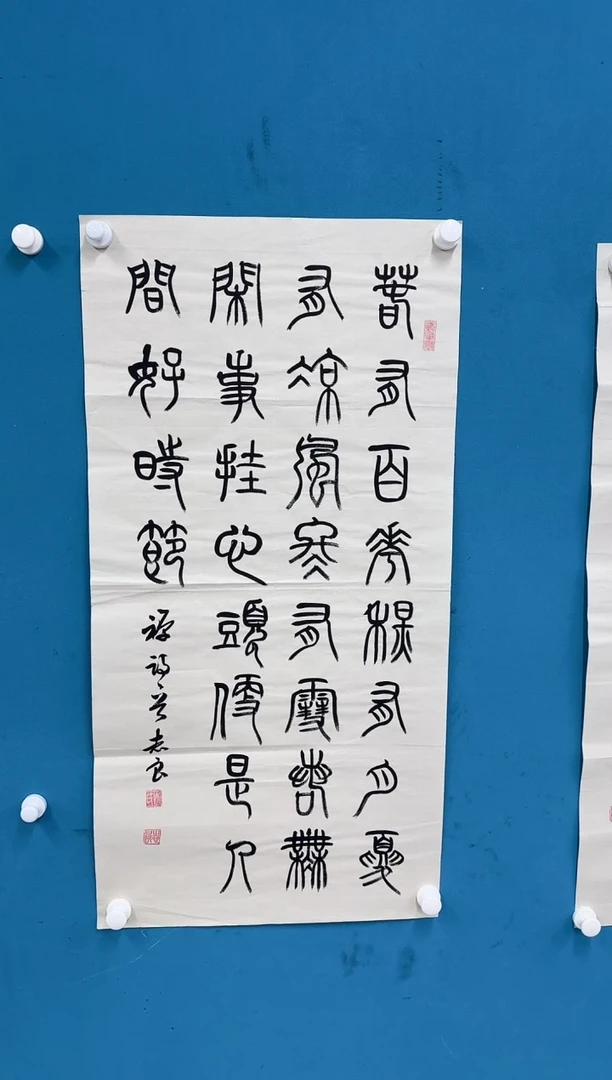 春有百花秋有月夏
有凉風冬有雪若無
閑事挂心頭便是人
間好時節
禅詩 志良